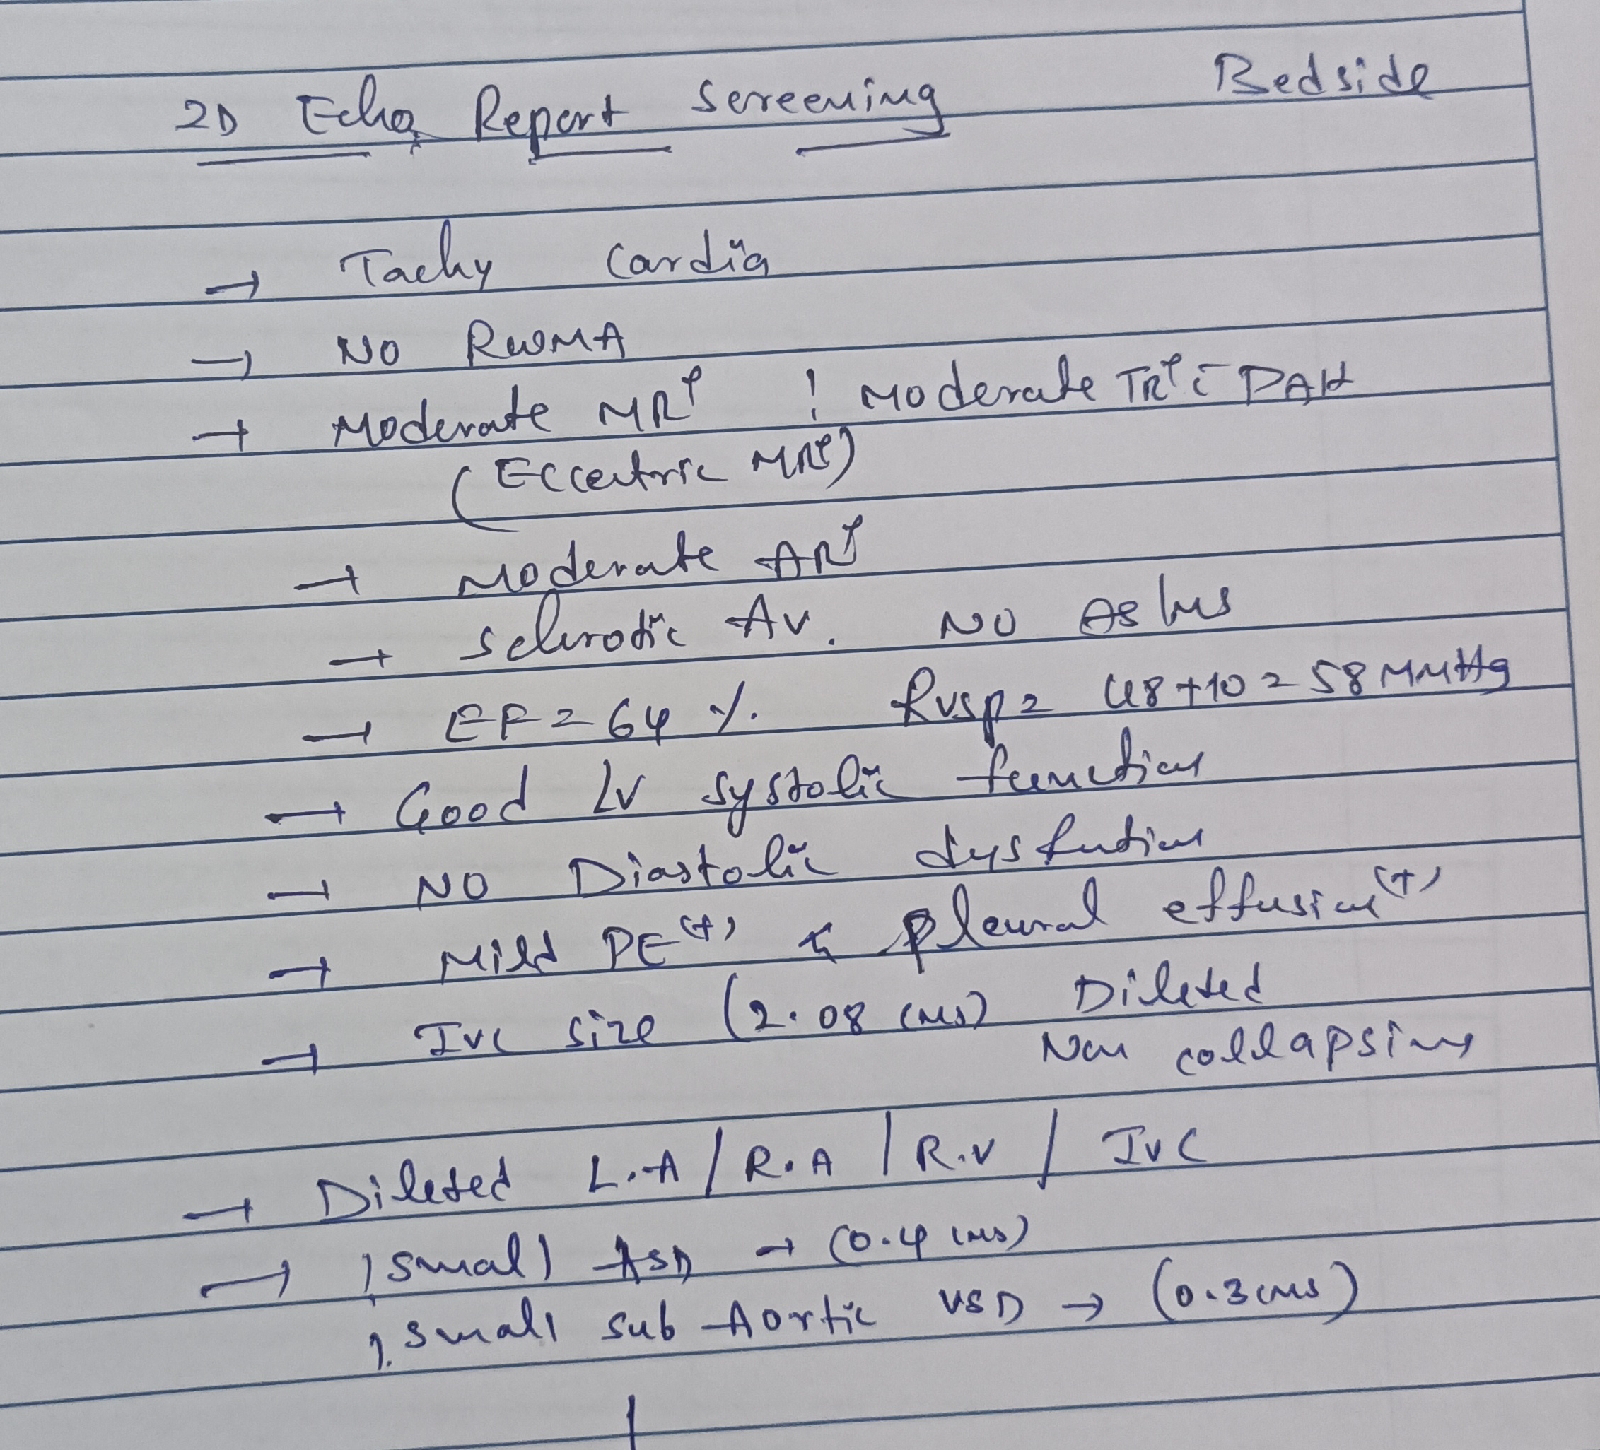 2D Echo Report Screening Bedside
→ Tachy Cardia
→ NO RWMA
→ Moderate MR+ ; Moderate TR+ c̄ PAH
(Eccentric MR+)
→ Moderate AR+
→ Sclerotic AV. NO AS/MS
→ EF = 64 %. RVSP = 48+10 = 58 MMHg
→ Good LV systolic function
→ NO Diastolic dysfution
→ Mild PE (+) & pleural effusion (+)
→ IVC size (2.08 cms) Dileted
Non collapsing
→ Dileted L.A / R.A / R.V / IVC
→ 1 small ASD → (0.4 cms)
1. small sub Aortic VSD → (0.3 cms)